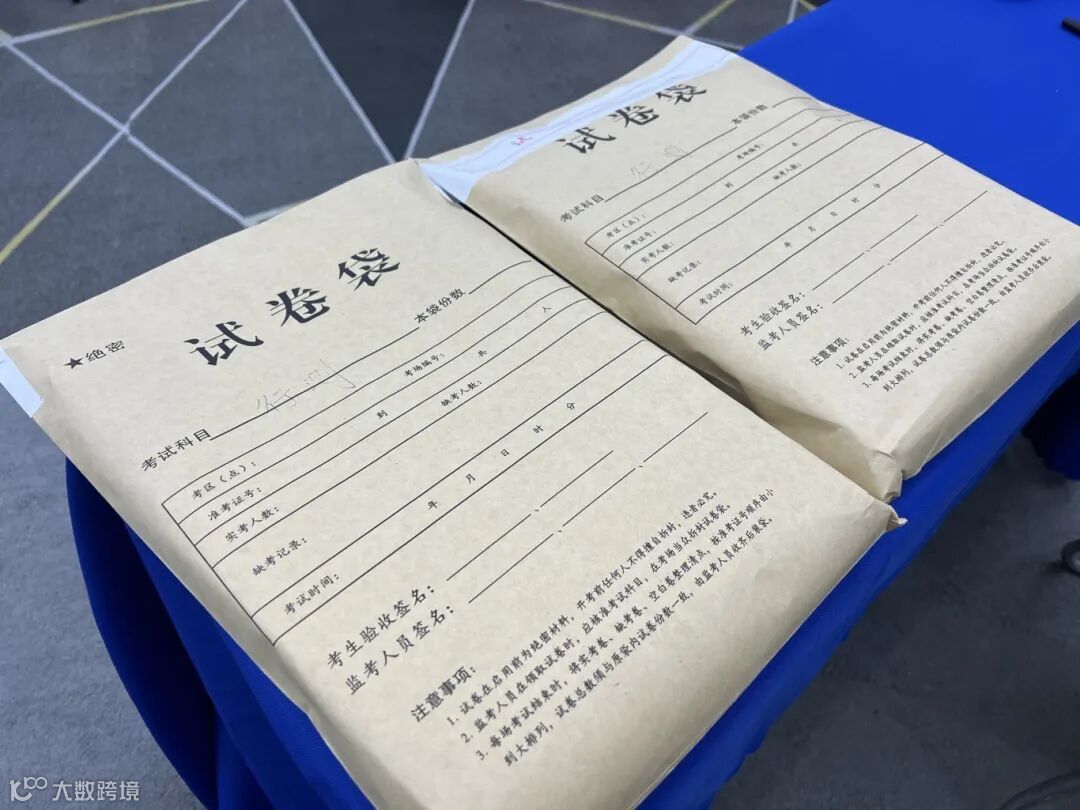 ★绝密
试卷袋
考试科目 行测 本袋份数
考区(点): 考场编号: 共 人
准考证号: 到
实考人数: 缺考人数:
缺考记录:
考试时间: 年 月 日 时 分
考生验收签名: 、 、
监考人员签名: 、 、
注意事项:
1. 试卷在启用前为绝密材料,开考前任何人不得擅自拆封,违者必究。
2. 监考人员在领取试卷时,应核准考试科目,在考场当众拆封试卷袋。
3. 每场考试结束时,将实考卷、缺考卷、空白卷整理清点,按准考证号顺序由小
到大排列,试卷总数须与原袋内试卷份数一致,由监考人员收齐后装袋。
试
试卷袋
考试科目 行测 本袋份数
考区(点): 考场编号: 共
准考证号: 到
实考人数: 缺考人数:
缺考记录:
考试时间: 年 月 日 时 分
考生验收签名: 、 、
监考人员签名: 、 、
注意事项:
1. 试卷在启用前为绝密材料,开考前任何人不得擅自拆封,违者必究。
2. 监考人员在领取试卷时,应核准考试科目,在考场当众拆封试卷袋。
3. 每场考试结束时,将实考卷、缺考卷、空白卷整理清点,按准考证号顺序由小
到大排列,试卷总数须与原袋内试卷份数一致,由监考人员收齐后装袋。
大数跨境